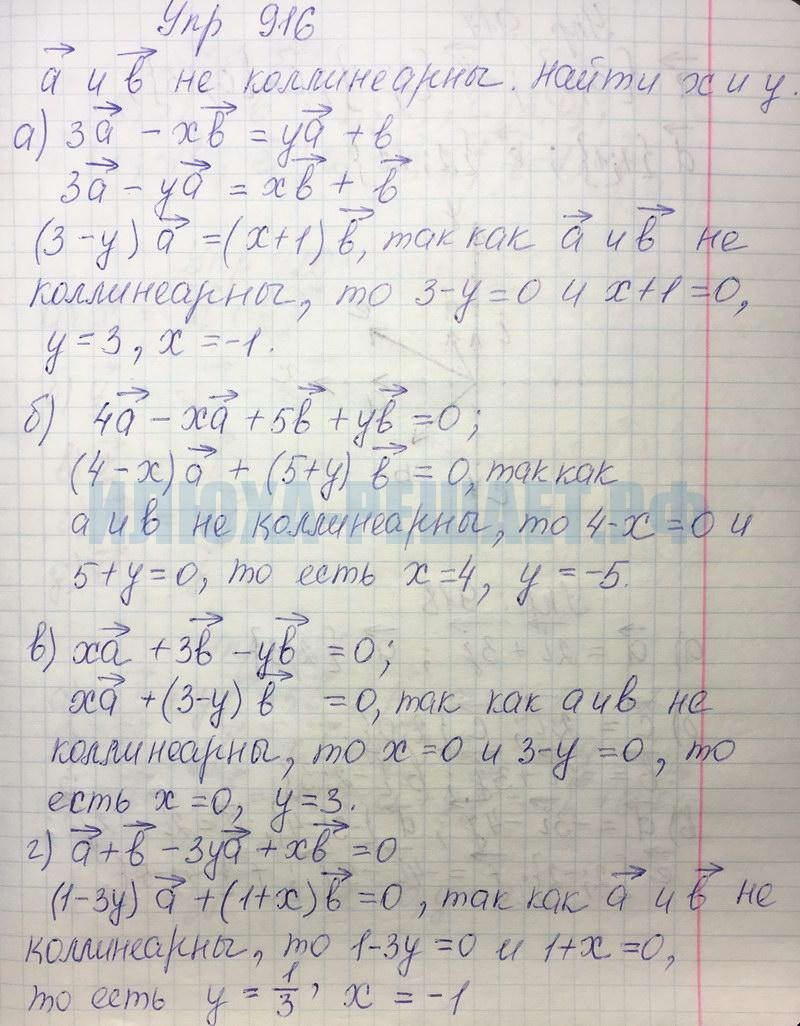 Упр 916
a⃗ и b⃗ не коллинеарны. Найти x и y.
а) 3a⃗ - xb⃗ = ya⃗ + b
3a⃗ - ya⃗ = xb⃗ + b⃗
(3-y) a⃗ = (x+1) b⃗, так как a⃗ и b⃗ не
коллинеарны, то 3-y=0 и x+1=0,
y=3, x=-1.
б) 4a⃗ - xa⃗ + 5b⃗ + yb⃗ =0;
(4-x)a⃗ + (5+y) b⃗ = 0, так как
a и b не коллинеарны, то 4-x=0 и
5+y=0, то есть x=4, y=-5.
ИЛЮХА.РЕШАЕТ.РФ
в) xa⃗ +3b⃗ -yb⃗ =0;
xa⃗ +(3-y) b⃗ =0, так как a и b не
коллинеарны, то x=0 и 3-y=0, то
есть x=0, y=3.
г) a⃗ + b⃗ - 3ya⃗ + xb⃗ =0
(1-3y) a⃗ + (1+x) b⃗ =0, так как a⃗ и b⃗ не
коллинеарны, то 1-3y=0 и 1+x=0,
то есть y = 1/3, x = -1